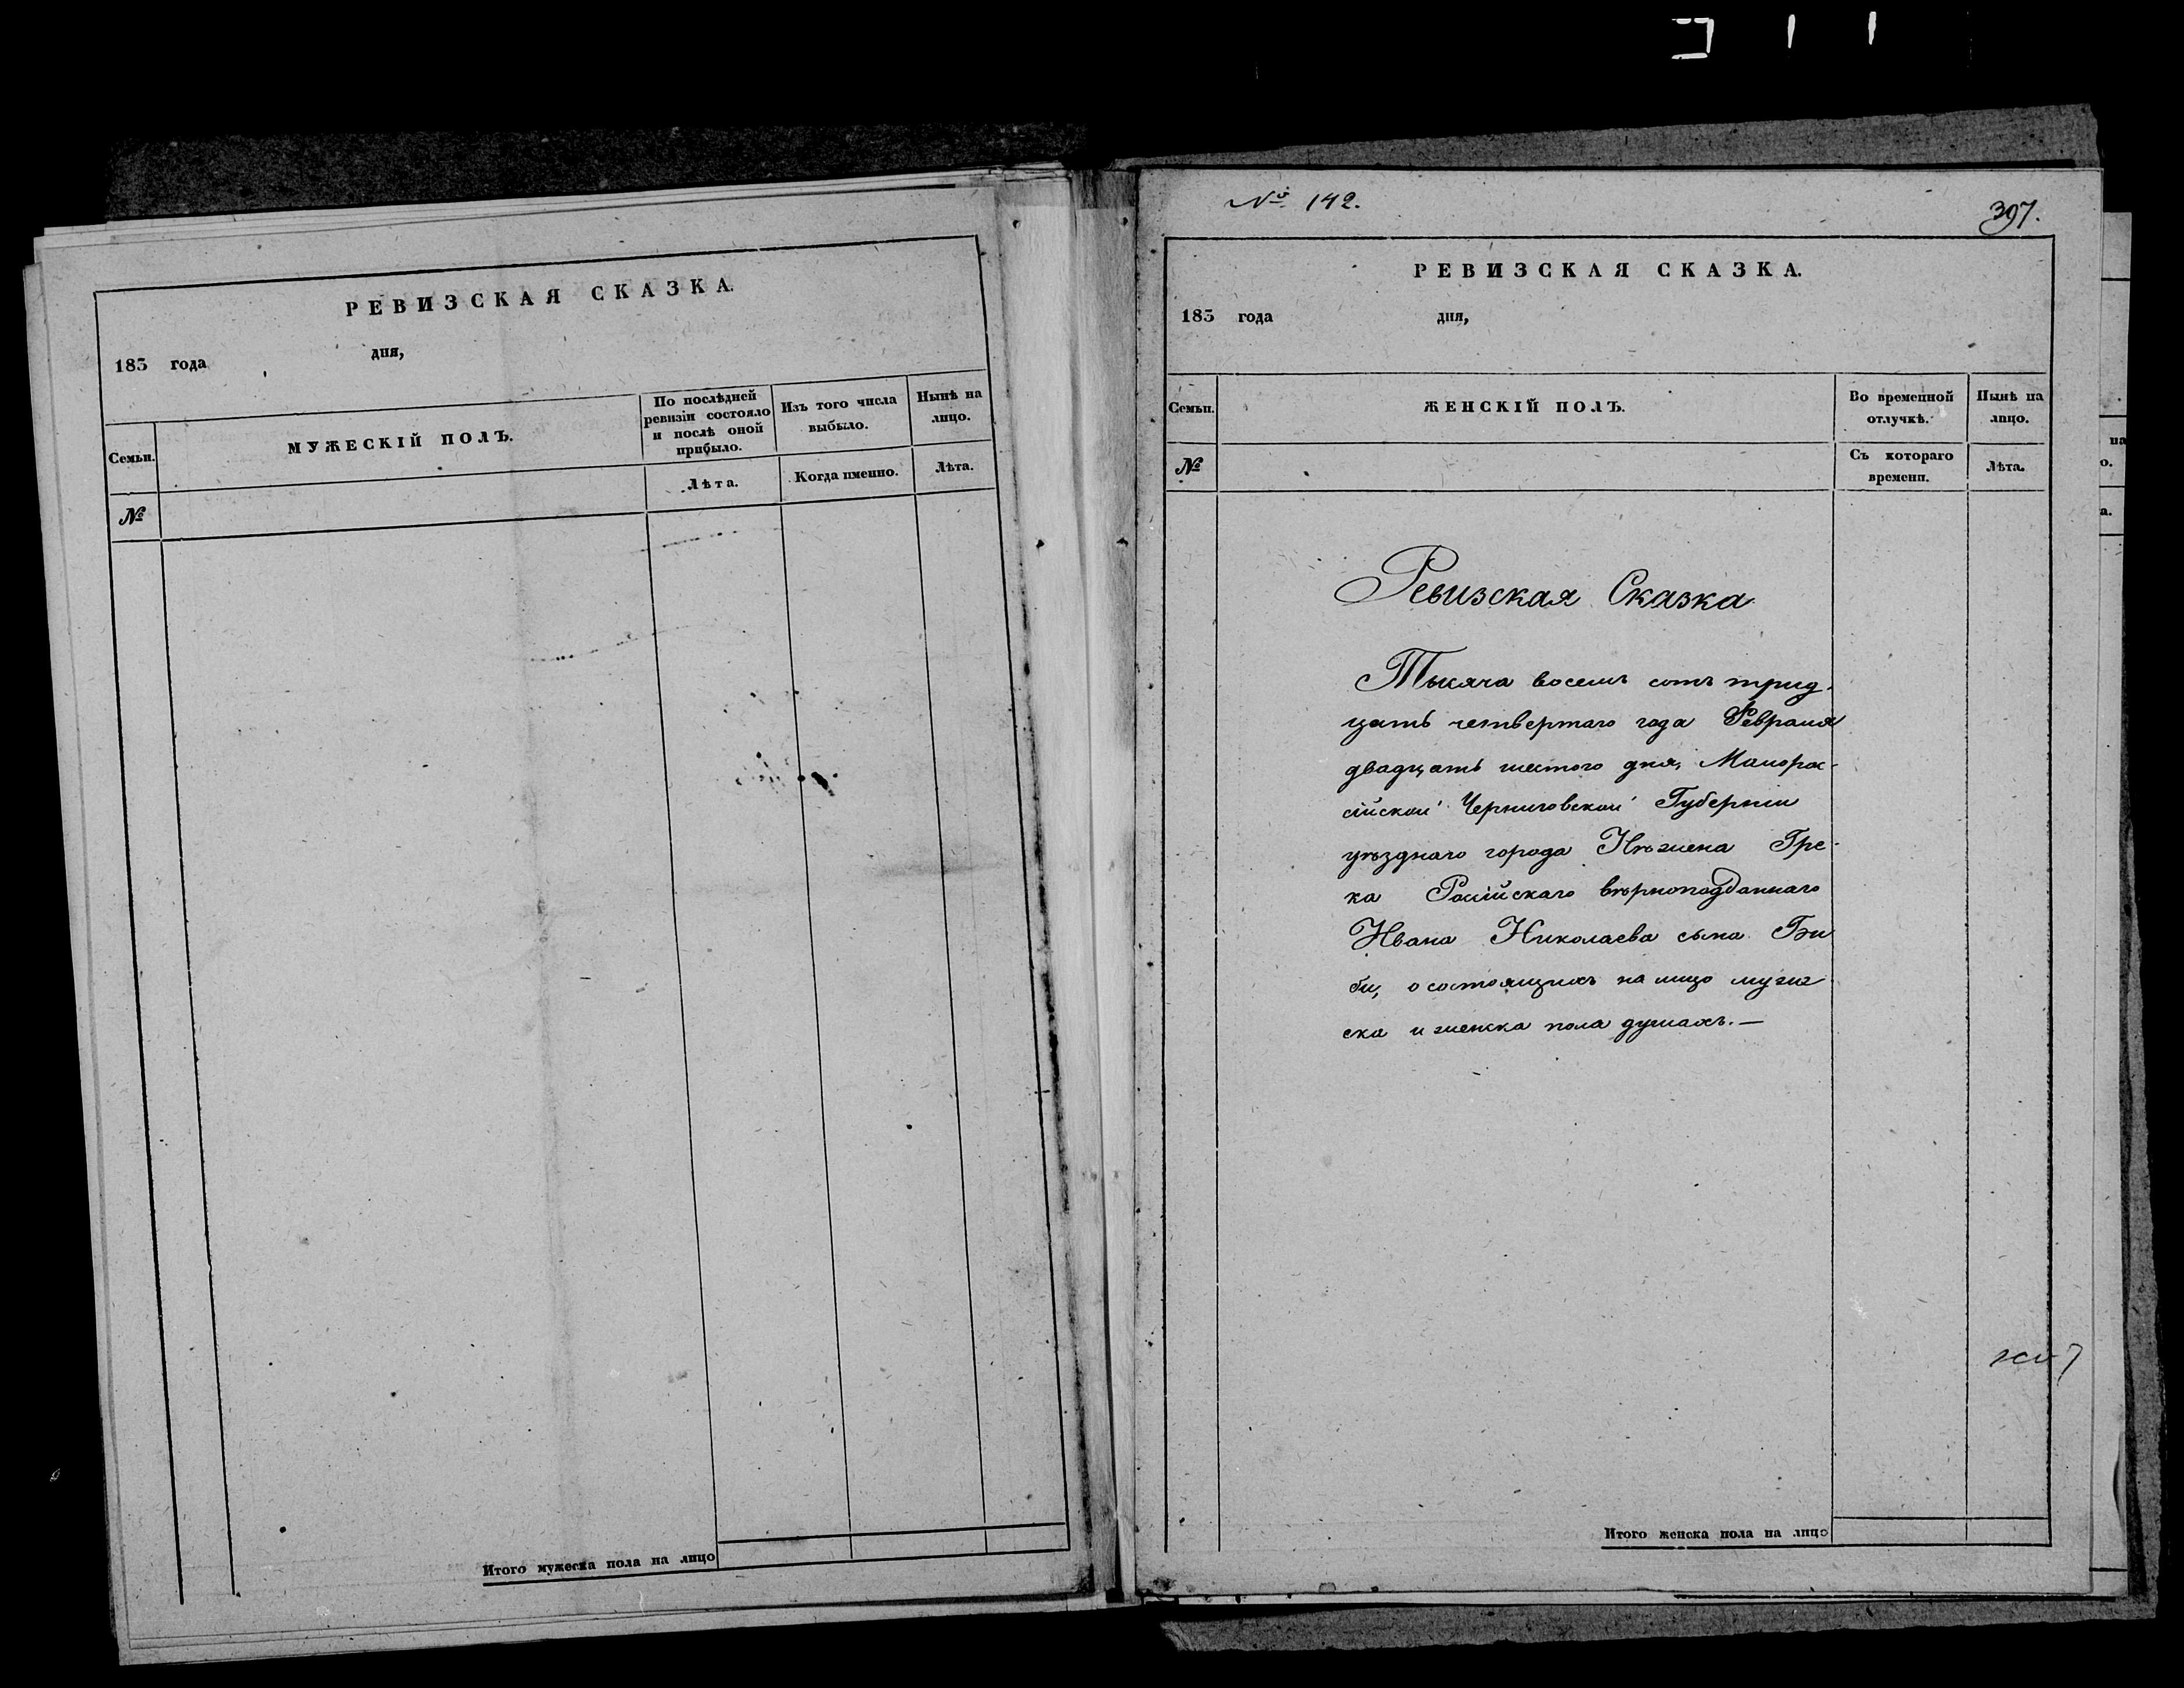 РЕВИЗСКАЯ СКАЗКА.
183 года дня,
Семьи.
МУЖЕСКІЙ ПОЛЪ.
По послѣдней
ревизіи состояло
и послѣ оной
прибыло.
Изъ того числа
выбыло.
Нынѣ на
лицо.
№
Лѣта.
Когда именно.
Лѣта.
Итого мужеска пола на лицо
№ 142.
397.
РЕВИЗСКАЯ СКАЗКА.
183 года дня,
Семьи.
ЖЕНСКІЙ ПОЛЪ.
Во временной
отлучкѣ.
Нынѣ на
лицо.
№
Съ котораго
времени.
Лѣта.
Ревизская Сказка
Тысяча восемъ сотъ трид-
цать четвертаго года Февраля
двадцать шестого дня, Малорос-
сійской Черниговской Губерніи
уѣзднаго города Нѣжина Гре-
ка Російскаго вѣрноподданнаго
Ивана Николаева сына
о состоящихъ на лицо муже
ска и женска пола душахъ.—
Итого женска пола на лицо
на
о.
а.